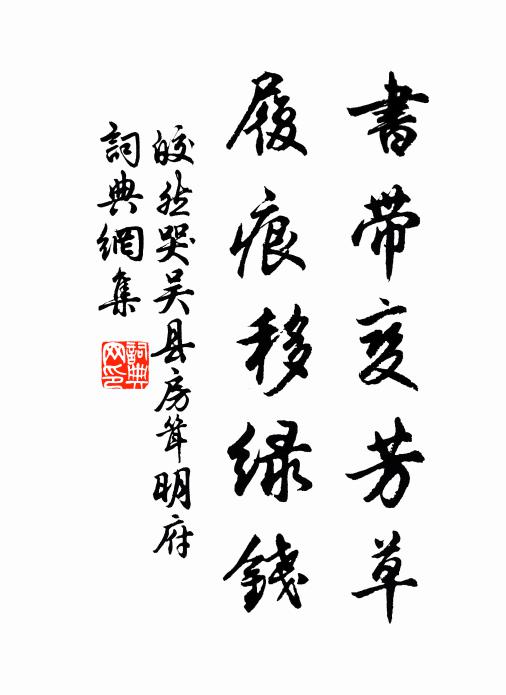 書帶変芳草
履痕移緑錢
皎然哭吴县房耸明府
詞典網集
詞典网印